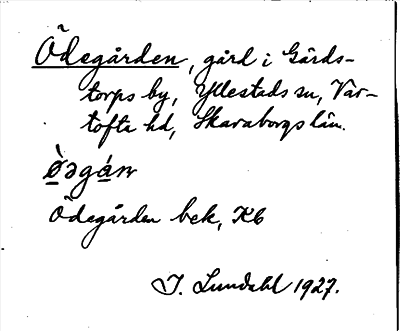 Ödegården, gård i Gårds-
torps by, Yllestads sn, Var-
tofta hd, Skaraborgs län.
ö̀əgán
Ödegården bek, Kb
I. Lundahl 1927.